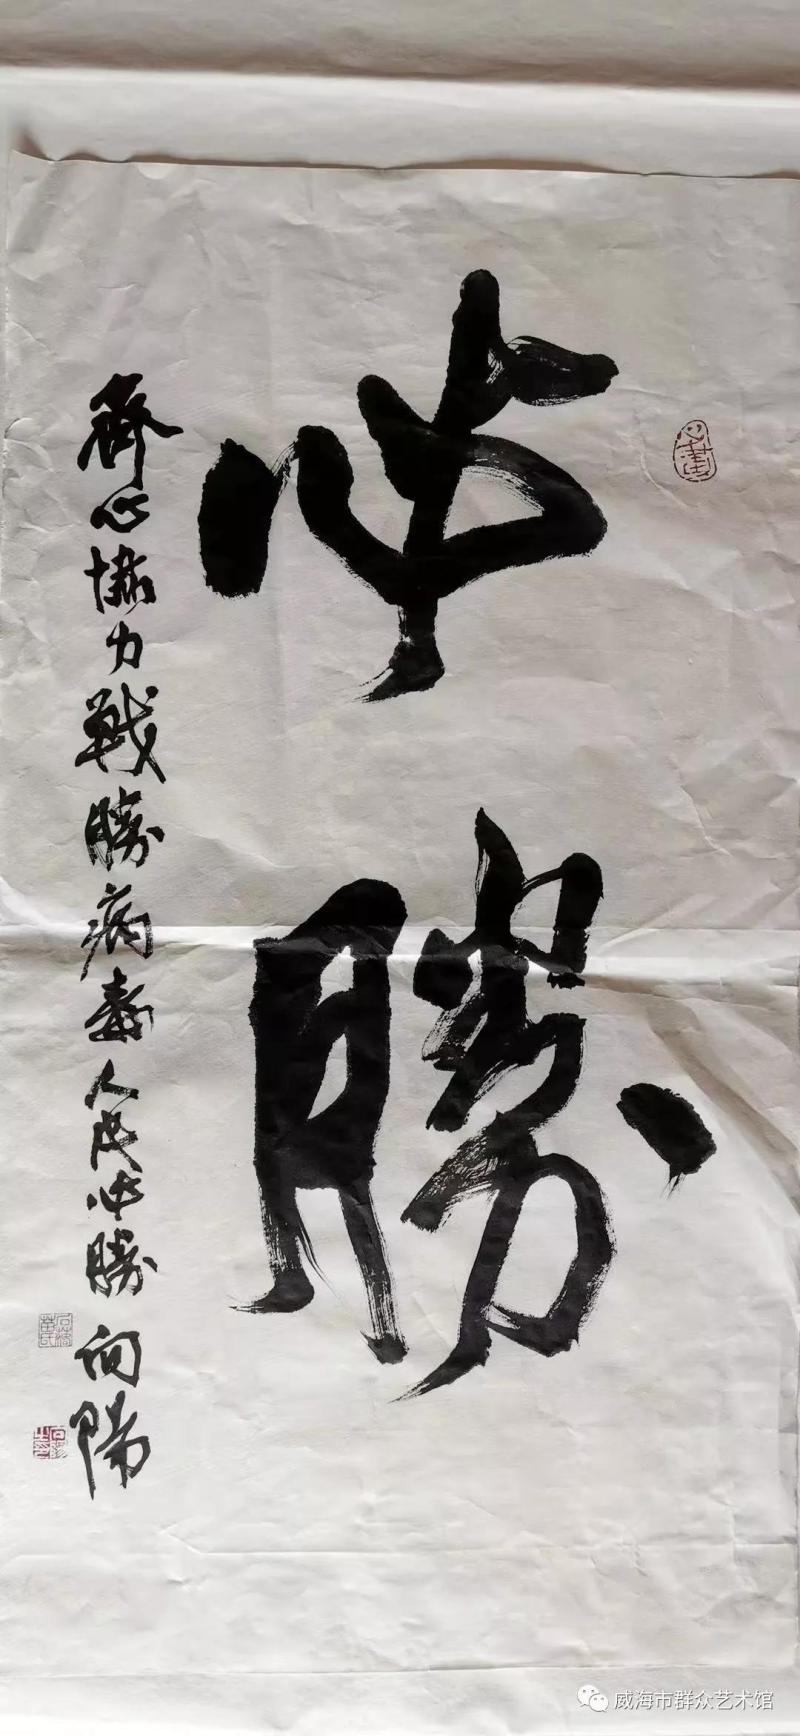 必勝
齊心協力戰勝病毒人民必勝 向陽
威海市群众艺术馆